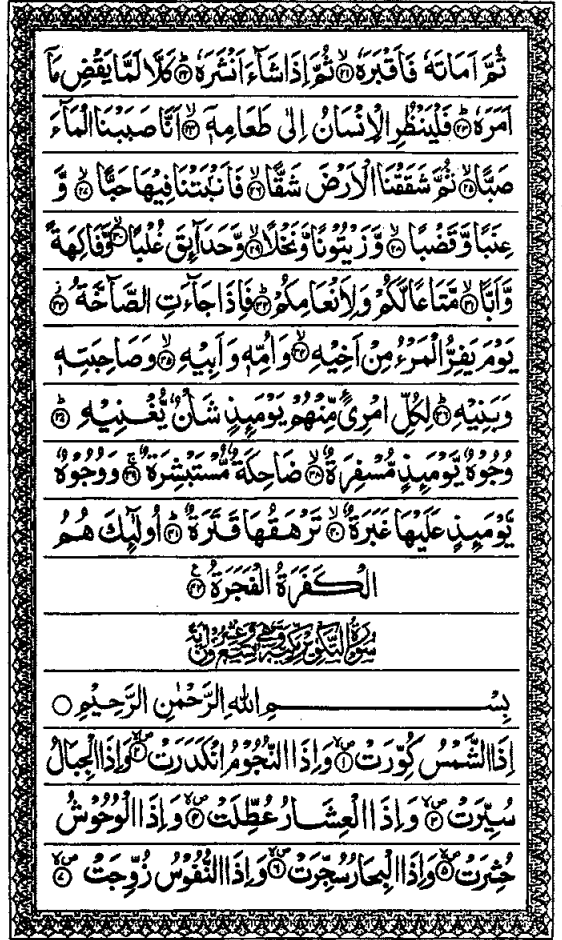 ثُمَّ اَمَاتَهٗ فَاَقْبَرَهٗ ﴿۲۱﴾ ثُمَّ اِذَا شَآءَ اَنْشَرَهٗ ﴿۲۲﴾ كَلَّا لَمَّا يَقْضِ مَاۤ
اَمَرَهٗ ﴿۲۳﴾ فَلْيَنْظُرِ الْاِنْسَانُ اِلٰى طَعَامِهٖۤ ﴿۲۴﴾ اَنَّا صَبَبْنَا الْمَآءَ
صَبًّا ﴿۲۵﴾ ثُمَّ شَقَقْنَا الْاَرْضَ شَقًّا ﴿۲۶﴾ فَاَنْۢبَتْنَا فِيْهَا حَبًّا ﴿۲۷﴾ وَّ
عِنَبًا وَّقَضْبًا ﴿۲۸﴾ وَّزَيْتُوْنًا وَّنَخْلًا ﴿۲۹﴾ وَّحَدَآئِقَ غُلْبًا ﴿۳۰﴾ وَّفَاكِهَةً
وَّاَبًّا ﴿۳۱﴾ مَّتَاعًا لَّكُمْ وَلِاَنْعَامِكُمْ ﴿۳۲﴾ فَاِذَا جَآءَتِ الصَّآخَّةُ ﴿۳۳﴾
يَوْمَ يَفِرُّ الْمَرْءُ مِنْ اَخِيْهِ ﴿۳۴﴾ وَاُمِّهٖ وَاَبِيْهِ ﴿۳۵﴾ وَصَاحِبَتِهٖ
وَبَنِيْهِ ﴿۳۶﴾ لِكُلِّ امْرِئٍ مِّنْهُمْ يَوْمَئِذٍ شَاْنٌ يُّغْنِيْهِ ﴿۳۷﴾
وُجُوْهٌ يَّوْمَئِذٍ مُّسْفِرَةٌ ﴿۳۸﴾ ضَاحِكَةٌ مُّسْتَبْشِرَةٌ ﴿۳۹﴾ وَوُجُوْهٌ
يَّوْمَئِذٍ عَلَيْهَا غَبَرَةٌ ﴿۴۰﴾ تَرْهَقُهَا قَتَرَةٌ ﴿۴۱﴾ اُولٰٓئِكَ هُمُ
الْكَفَرَةُ الْفَجَرَةُ ﴿۴۲﴾
سُوْرَةُ التَّكْوِيْرِ مَكِّيَّةٌ وَّهِيَ تِسْعٌ وَّعِشْرُوْنَ اٰيَةً
بِسْمِ اللهِ الرَّحْمٰنِ الرَّحِيْمِ
اِذَا الشَّمْسُ كُوِّرَتْ ﴿۱﴾ وَاِذَا النُّجُوْمُ انْكَدَرَتْ ﴿۲﴾ وَاِذَا الْجِبَالُ
سُيِّرَتْ ﴿۳﴾ وَاِذَا الْعِشَارُ عُطِّلَتْ ﴿۴﴾ وَاِذَا الْوُحُوْشُ
حُشِرَتْ ﴿۵﴾ وَاِذَا الْبِحَارُ سُجِّرَتْ ﴿۶﴾ وَاِذَا النُّفُوْسُ زُوِّجَتْ ﴿۷﴾